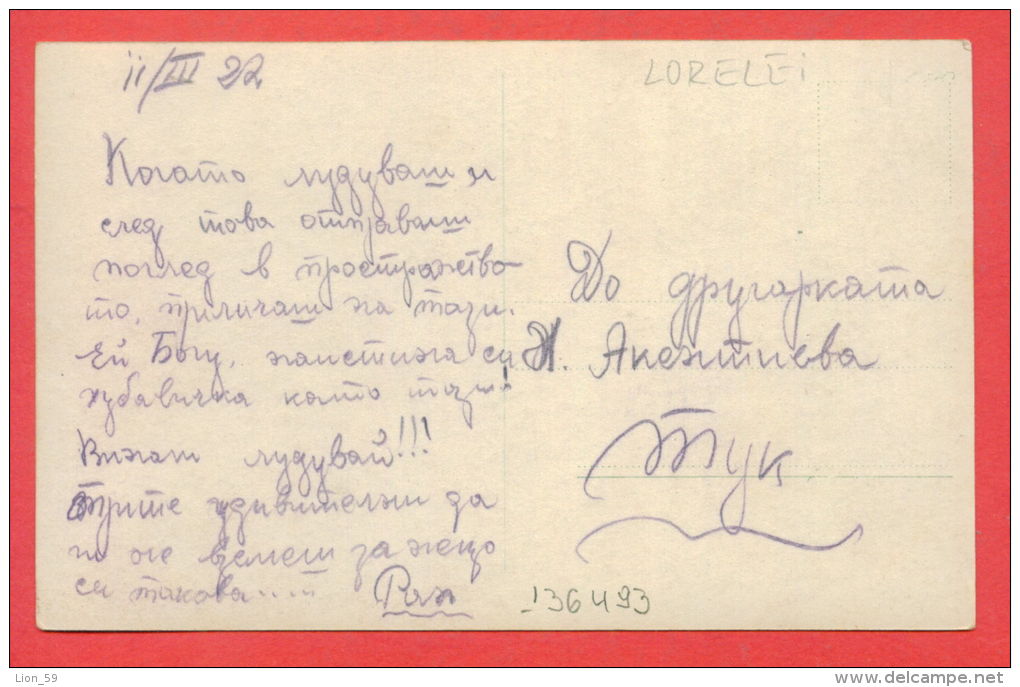 11/III 22
LORELEi
Когато лудуваш и
след това отправяш
поглед в пространство-
то, приличаш на тази.
Ей Богу, наистина си
хубавичка като тази!
Винаги лудувай!!!
Трите удивителни да
не вземеш за нещо
си такова.....
Рая
До другарката
Н. Акентиева
Тук
136493
Lion_59
www.delcampe.net